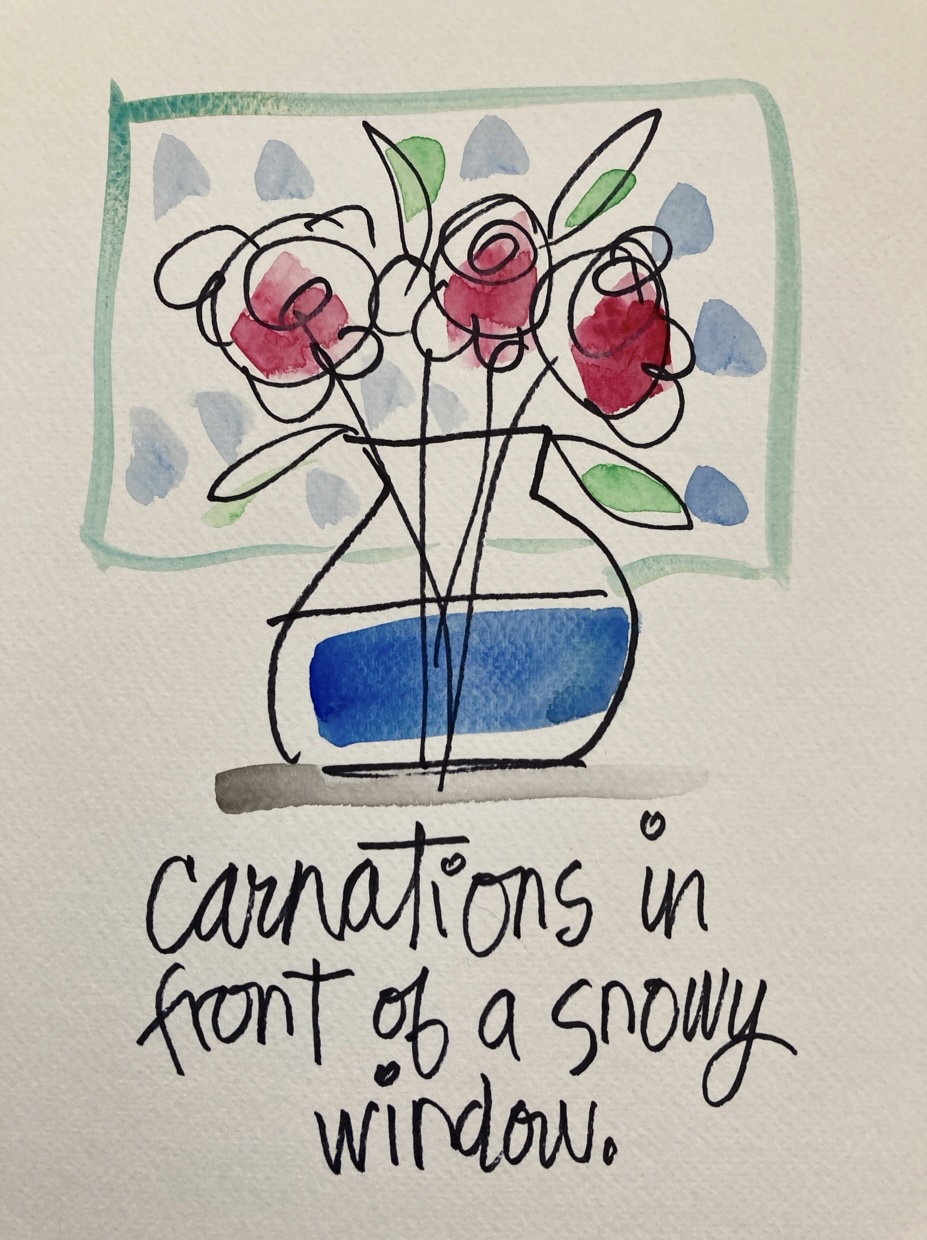 carnations in
front of a snowy
window.